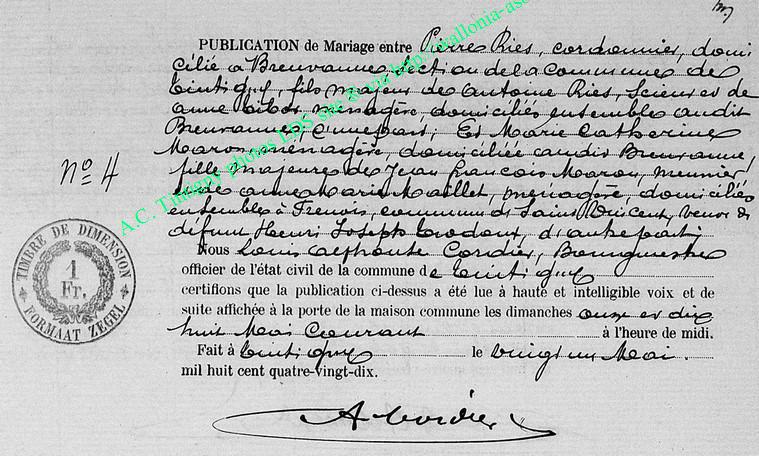 nº 4
PUBLICATION de Mariage entre Pierre Ries, cordonnier, domi
cilié à Breuvanne section de la Commune de
Tintigny, fils majeur de Antoine Ries, scieur et de
Anne ménagère, domiciliés ensemble audit
Breuvanne d'une part; Et Marie Catherine
Maron, ménagère, domiciliée audit Breuvanne,
fille majeure de Jean François Maron, meunier
et de Anne Marie Maillet, ménagère, domiciliés
ensemble à Frenois, commune de Saint Vincent, veuve de
défunt Henri Joseph d'autre part.
Nous Louis Alphonse Cordier, Bourgmestre
officier de l'état civil de la commune de Tintigny
certifions que la publication ci-dessus a été lue à haute et intelligible voix et de
suite affichée à la porte de la maison commune les dimanches onze et dix
huit Mai Courant à l'heure de midi.
Fait à Tintigny le vingt un Mai
mil huit cent quatre-vingt-dix.
A Cordier
TIMBRE DE DIMENSION
1
Fr.
FORMAAT ZEGEL
A.C. Tintigny photos LDS site